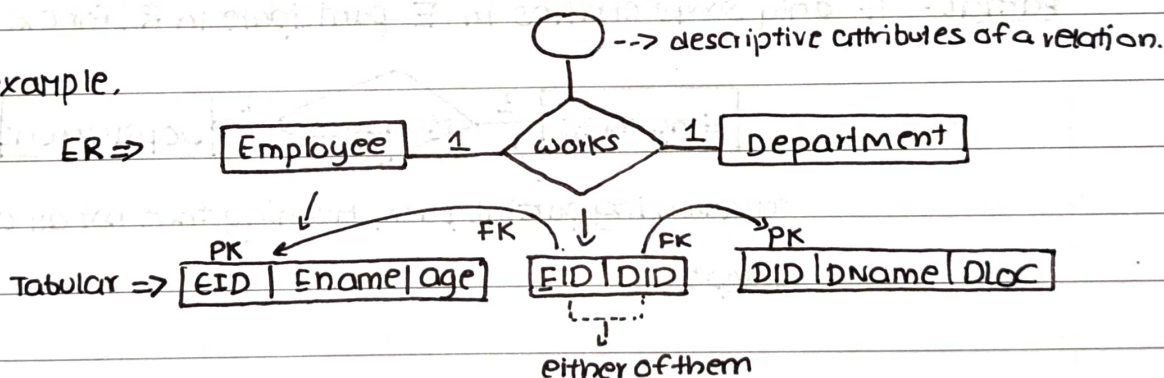 --> descriptive attributes of a relation.
xample,
ER => Employee 1 works 1 Department
PK FK FK PK
Tabular => EID | Ename | age EID | DID DID | DName | DLOC
either of them